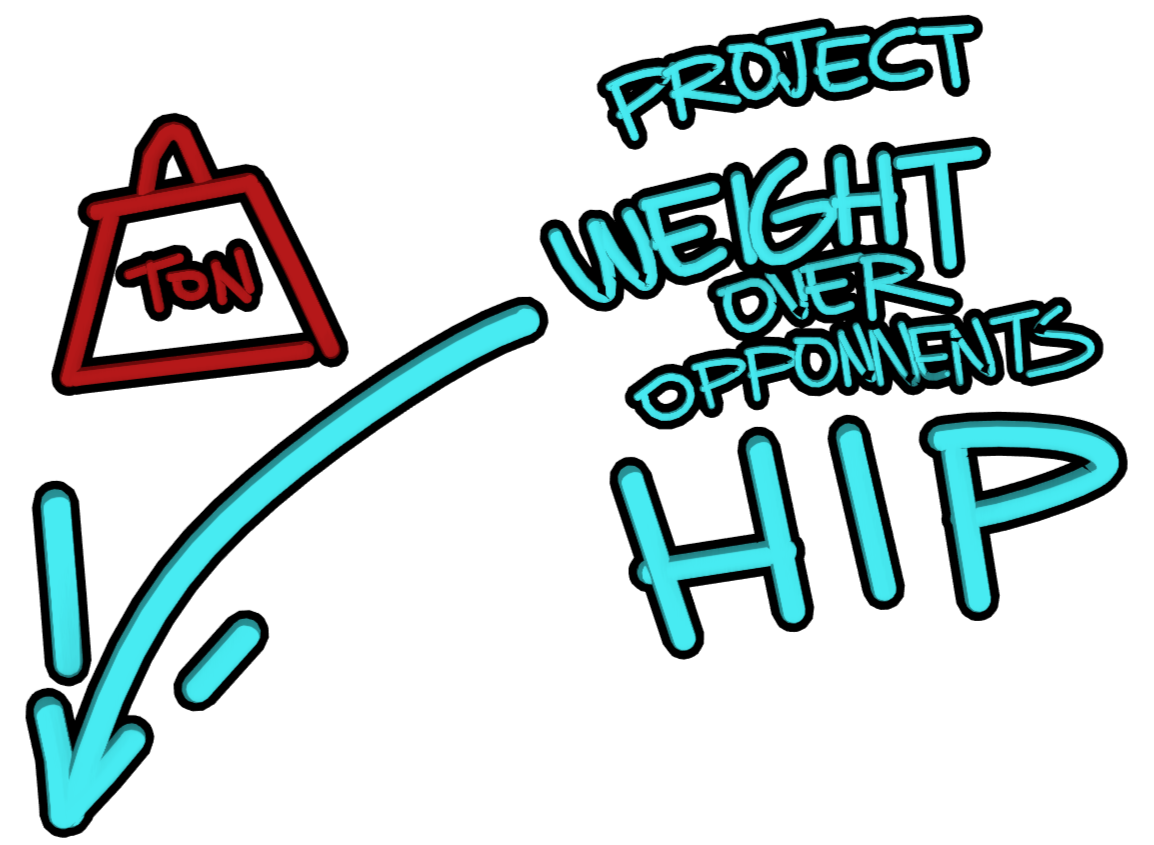 TON
PROJECT
WEIGHT
OVER
OPPONNENTS
HIP